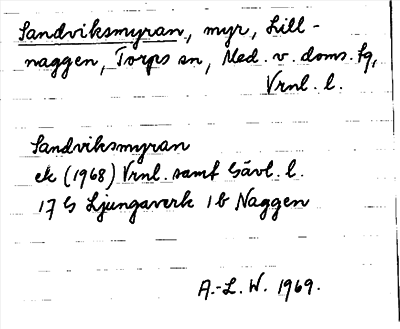 Sandviksmyran, myr, Lill-
naggen, Torps sn, Med. v. doms. fg,
Vrnl. l.
Sandviksmyran
ek (1968) Vrnl. samt Gävl. l.
17 G Ljungaverk 1 b Naggen
A.-L. W. 1969.